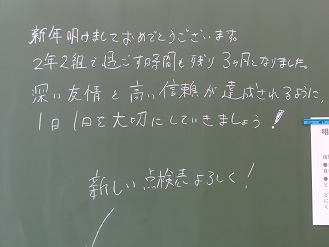 新年明けましておめでとうございます。
2年2組で過ごす時間も残り3ヶ月になりました。
深い友情と高い信頼が達成されるように、
1日1日を大切にしていきましょう!
新しい点検表よろしく!